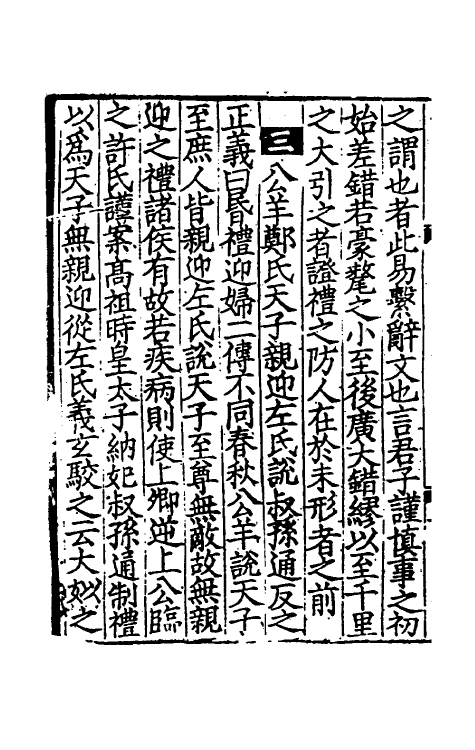 之謂也者此易繫辭文也言君子謹慎事之初
始差錯若豪氂之小至後廣大錯繆以至千里
之大引之者證禮之防人在於未形者之前
三 公羊鄭氏天子親迎左氏說叔孫通反之
正義曰昬禮迎婦二傳不同春秋公羊說天子
至庶人皆親迎左氏說天子至尊無敵故無親
迎之禮諸侯有故若疾病則使上卿逆上公臨
之許氏謹案高祖時皇太子納妃叔孫通制禮
以爲天子無親迎從左氏義玄駮之云大姒之